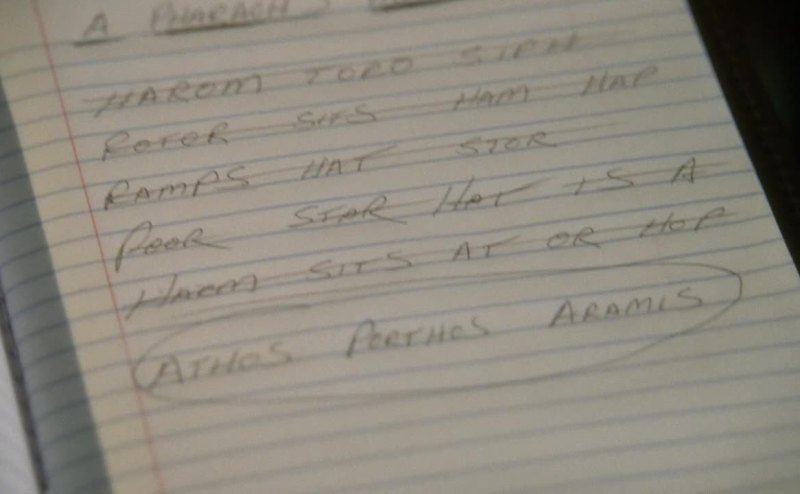 A PHARAOH
HAROM TORO SIPH
ROTOR SITS HAM HAP
RAMPS HAT STOR
POOR STAR HAT IS A
HAROM SITS AT OR HOP
ATHOS PORTHOS ARAMIS